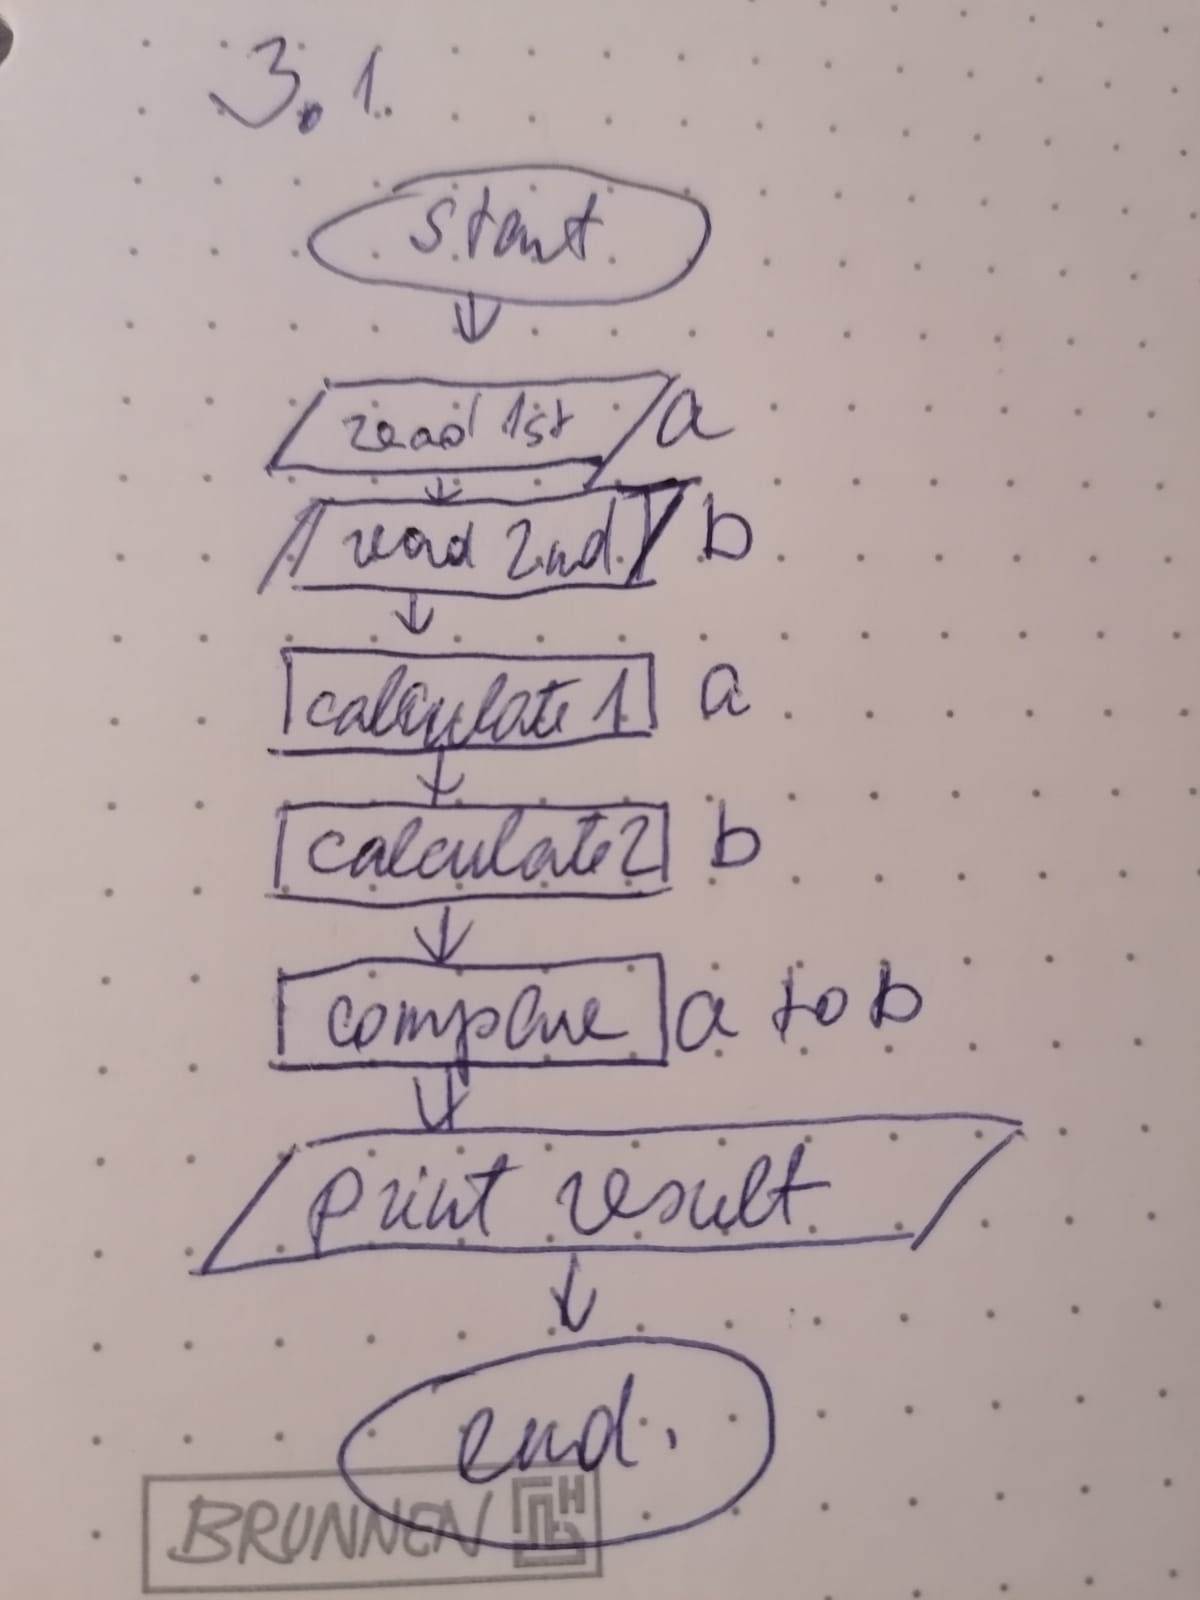 3.1.
start
read 1st a
read 2nd b
calculate 1 a
calculate 2 b
compare a to b
print result
end.
BRUNNEN